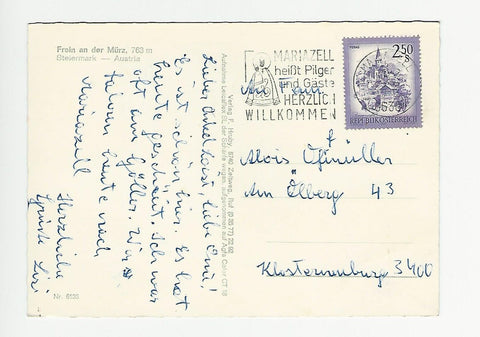 Frein an der Mürz, 763 m
Steiermark — Austria
Lieber Onkel Loisi, liebe Emi!
Es ist schön hier. Es hat
heute geschneit. Ich war
oft am Göller. Wir
fahren heute nach
Mariazell
Herzliche
Grüße Lisi
Nr. 6535
Verlag F. Hruby, 8740 Zeltweg, Ruf (0 35 77) 22 92
MARIAZELL
heißt Pilger
und Gäste
HERZLICH
WILLKOMMEN
2.50
S
REPUBLIK ÖSTERREICH
An Fam.
Alois
Am Ölberg 43
Klosterneuburg 3400